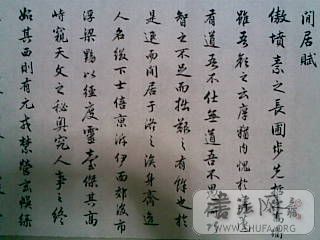 閒居賦
傲墳素之長圃步先哲之高衢
雖吾顏之云厚猶内愧於寧蘧
有道吾不仕無道吾不愚
智之不足而拙艱之有餘也於
是退而閒居于洛之涘身齊逸
人名綴下士倍京泝伊面郊後市
浮梁黝以經度靈臺傑其高
峙窺天文之秘奥究人事之終
始其西則有元戎禁營玄幙緑